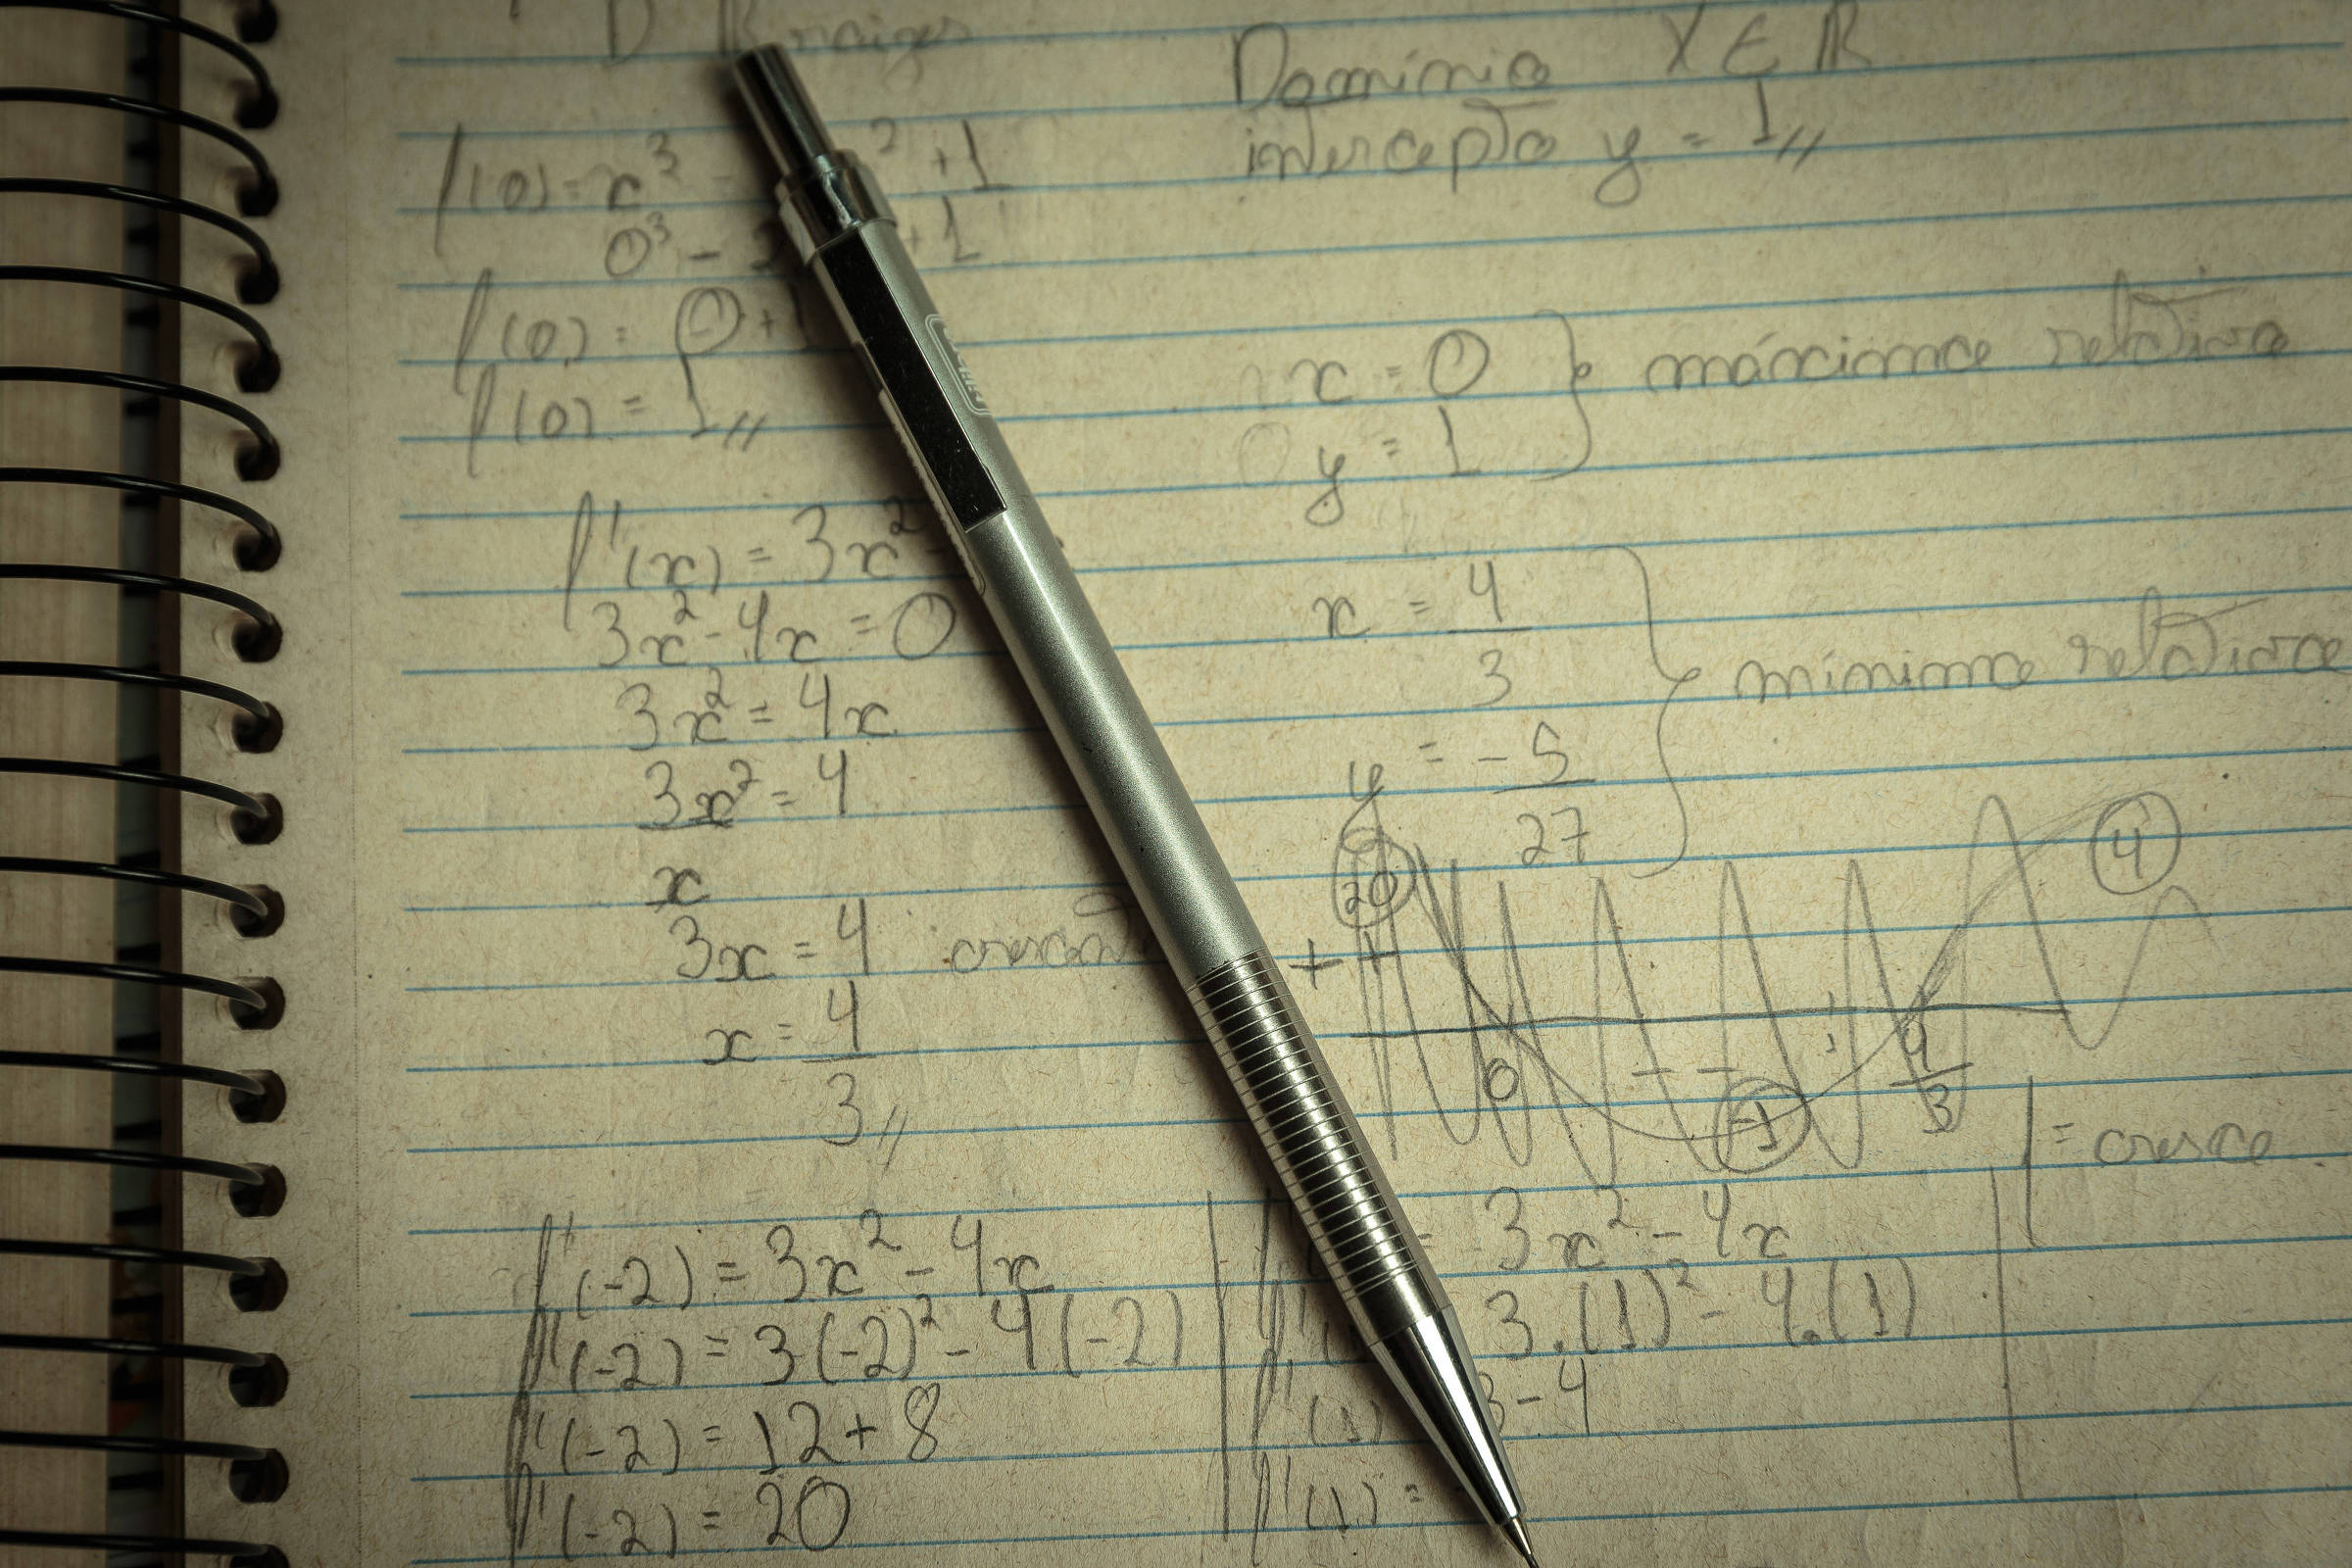 Domínio X ∈ ℝ
intercepto y = 1
f(0) = x³ - ² + 1
0³ - + 1
f(0) = 0 + 1
f(0) = 1
x = 0
y = 1
máximo relativo
f'(x) = 3x² -
3x² - 4x = 0
3x² = 4x
3x² = 4
x
3x = 4
x = 4
3
x = 4
3
y = -5
27
mínimo relativo
20
4
+ +
0
- -
-1
4
3
= cresce
f'(-2) = 3x² - 4x
f'(-2) = 3(-2)² - 4(-2)
f'(-2) = 12 + 8
f'(-2) = 20
= 3x² - 4x
f' 3.(1)² - 4.(1)
f'(1) 3 - 4
f'(1) =